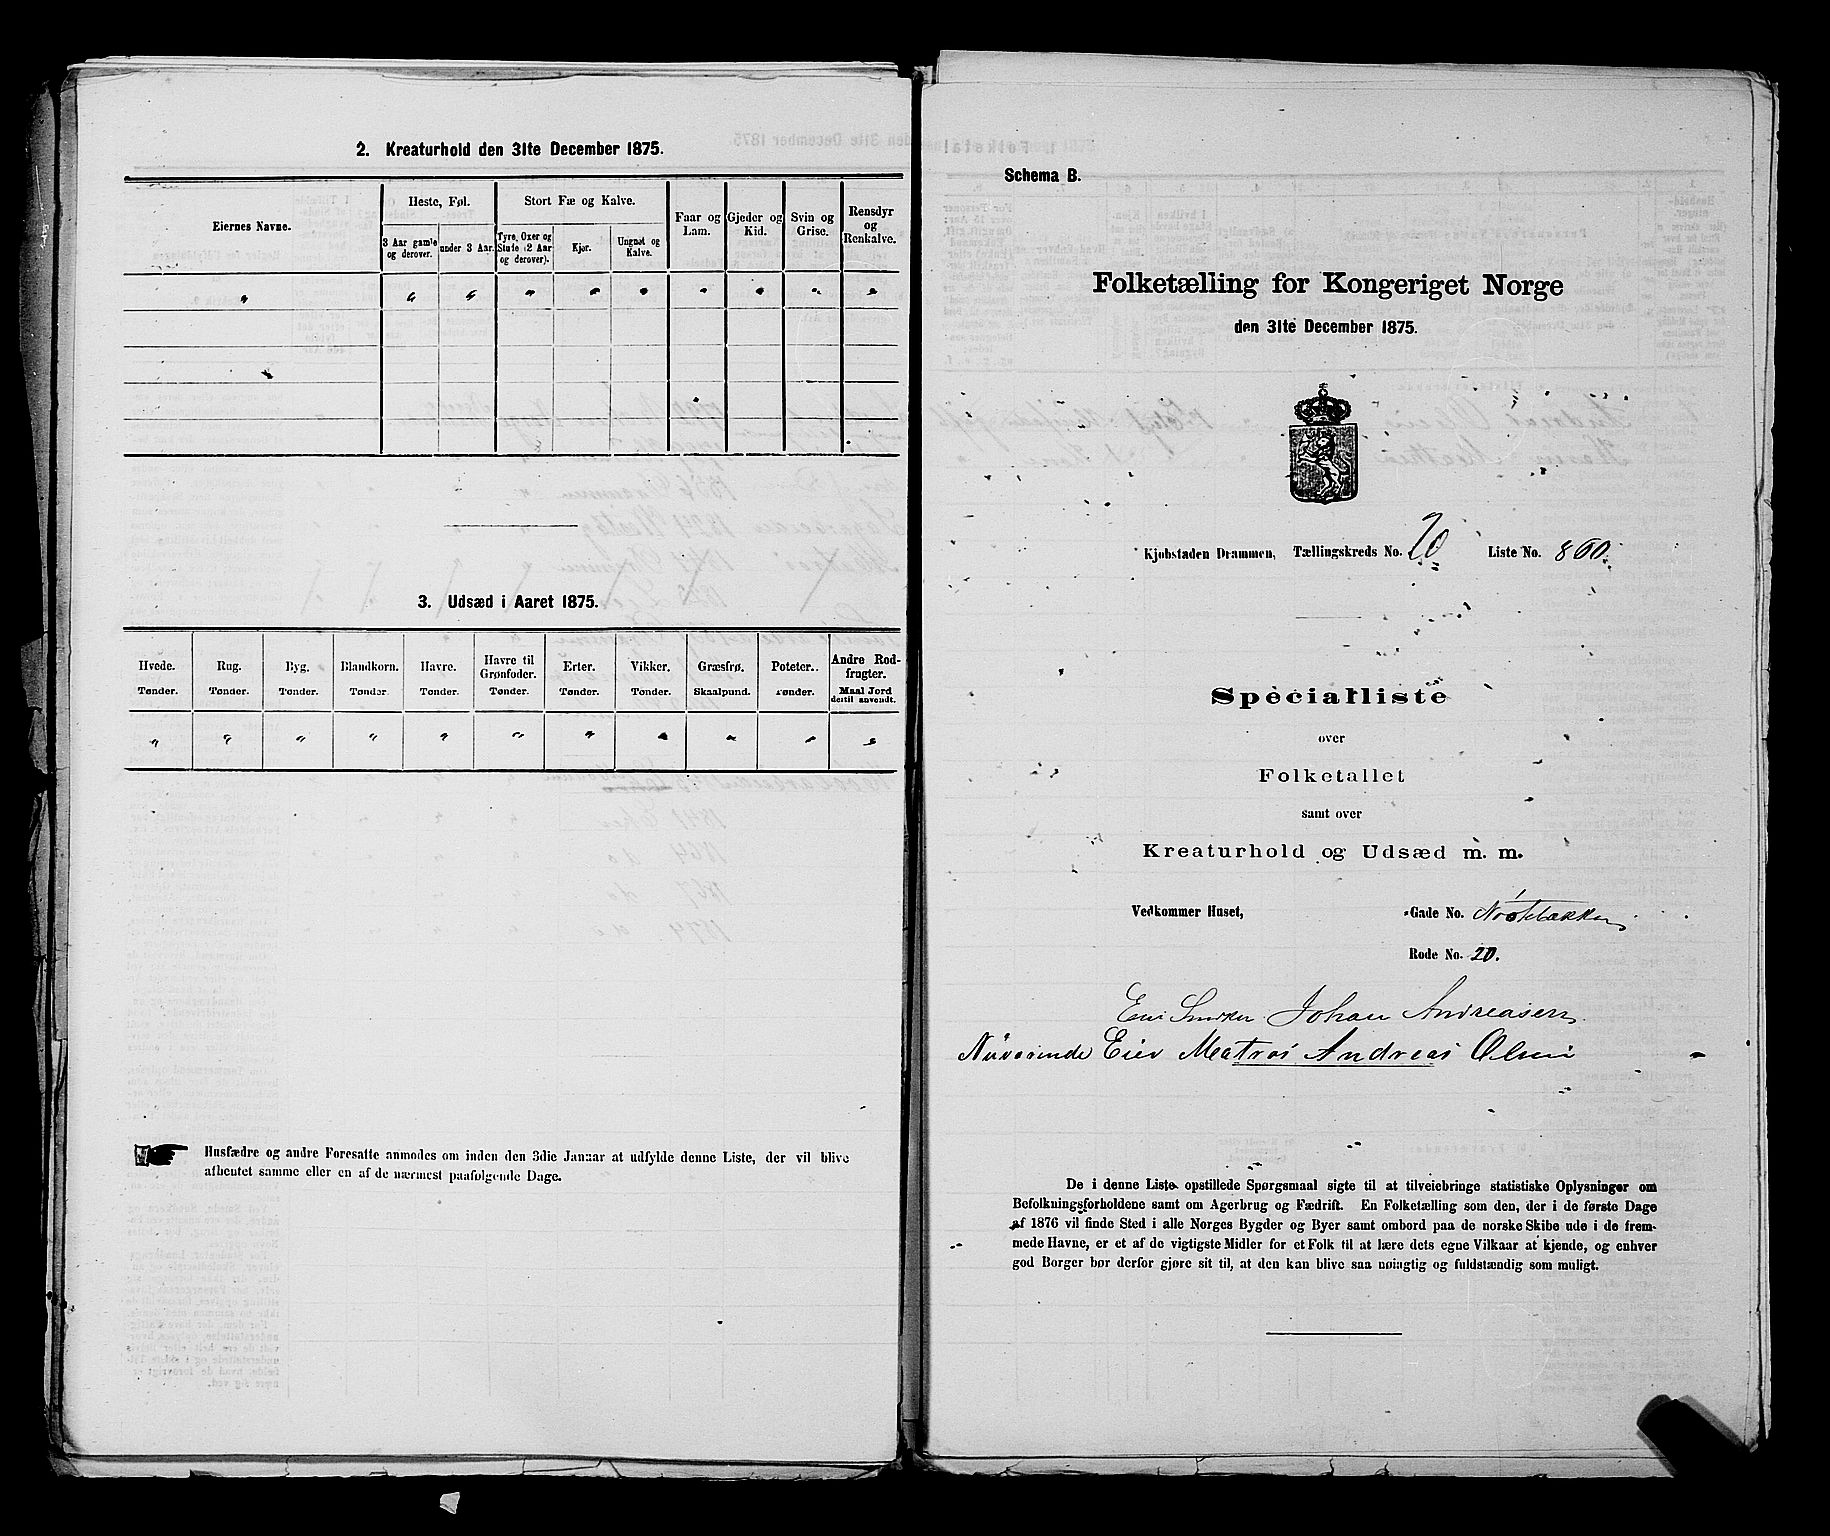 2. Kreaturhold den 31te December 1875.
Eiernes Navne.
Heste, Føl.
Stort Fæ og Kalve.
Faar og Lam.
Gjeder og Kid.
Svin og Grise.
Rensdyr og Renkalve.
3 Aar gamle og derover.
under 3 Aar.
Tyre, Oxer og Stude (2 Aar og derover).
Kjør.
Ungnøt og Kalve.
" " " " " " " " " "
3. Udsæd i Aaret 1875.
Hvede. Rug. Byg. Blandkorn. Havre. Havre til Grønfoder. Erter. Vikker. Græsfrø. Poteter. Andre Rodfrugter.
Tønder. Tønder. Tønder. Tønder. Tønder. Tønder. Tønder. Tønder. Skaalpund. Tønder. Maal Jord dertil anvendt.
" " " " " " " " " " "
Husfædre og andre Foresatte anmodes om inden den 3die Januar at udfylde denne Liste, der vil blive
afhentet samme eller en af de nærmest paafølgende Dage.
Schema B.
Folketælling for Kongeriget Norge
den 31te December 1875.
Kjøbstaden Drammen, Tællingskreds No. 20 Liste No. 860.
Specialliste
over
Folketallet
samt over
Kreaturhold og Udsæd m. m.
Vedkommer Huset, Gade No.
Rode No. 20.
Johan Andreasen
Nuværende Eier Matros Andreas Olsen
De i denne Liste opstillede Spørgsmaal sigte til at tilveiebringe statistiske Oplysninger om
Befolkningsforholdene samt om Agerbrug og Fædrift. En Folketælling som den, der i de første Dage
af 1876 vil finde Sted i alle Norges Bygder og Byer samt ombord paa de norske Skibe ude i de frem-
mede Havne, er et af de vigtigste Midler for et Folk til at lære dets egne Vilkaar at kjende, og enhver
god Borger bør derfor gjøre sit til, at den kan blive saa nøiagtig og fuldstændig som muligt.